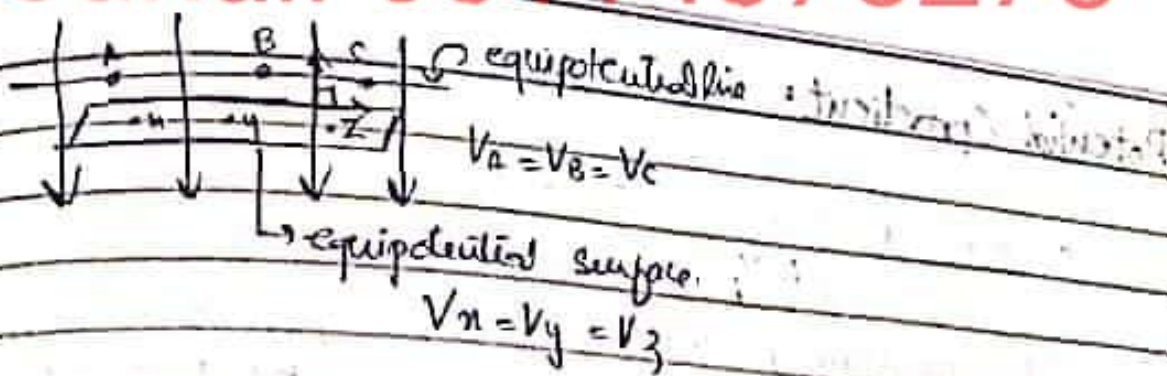 A B C equipotential line :
V_A = V_B = V_C
x y z
equipotential surface.
Vx = Vy = Vz